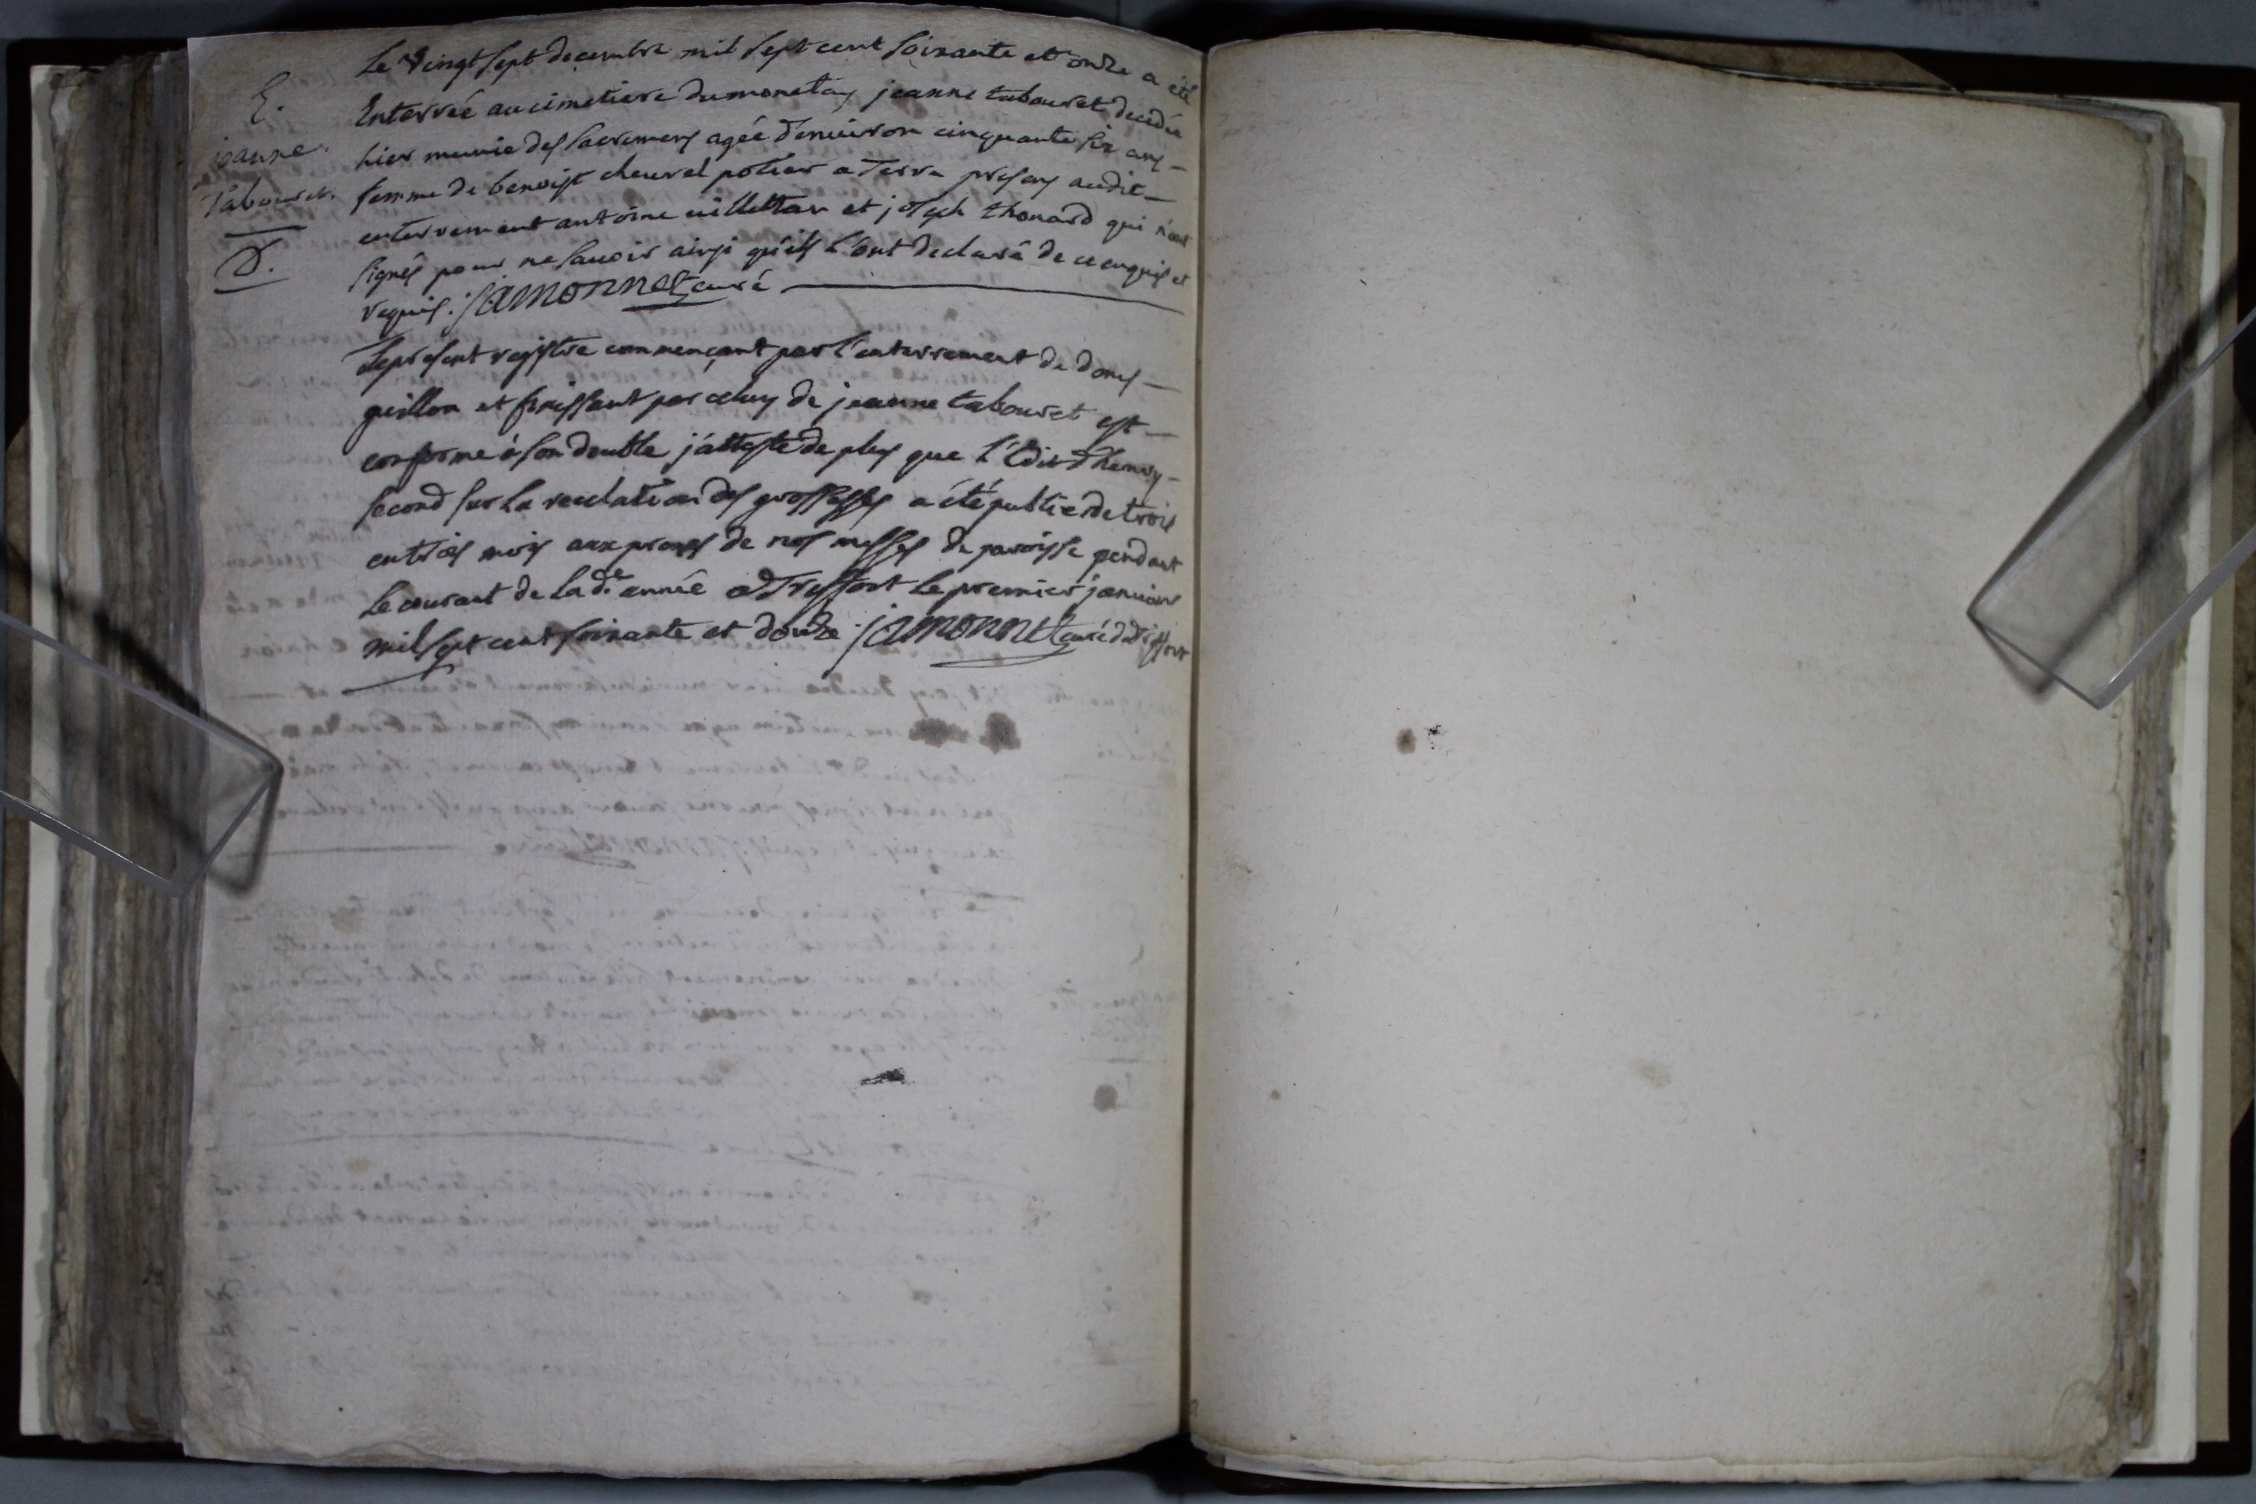 E.
jeanne
Tabouret.
D.
Le vingt sept decembre mil sept cent soixante et onze a été
Enterrée au cimetiere du monetay jeanne tabouret decedée
hier munie des sacremens agée d'environ cinquante six ans
femme de benoist chevrel potier a Terre presens audit
enterrement antoine et joseph thonard qui n'ont
signés pour ne savoir ainsi qu'ils l'ont declaré de ce enquis et
requis. jamonnet curé
Le present registre commençant par l'enterrement de
guillon et finissant par celuy de jeanne tabouret est
conforme à son double j'atteste de plus que l'Edit d'henry
second sur la revelation des grossesses a été publié de trois
en trois mois aux prones de nos messes de paroisse pendant
le courant de la de. année a Treffort le premier janvier
mil sept cent soixante et douze. jamonnet curé de Treffort